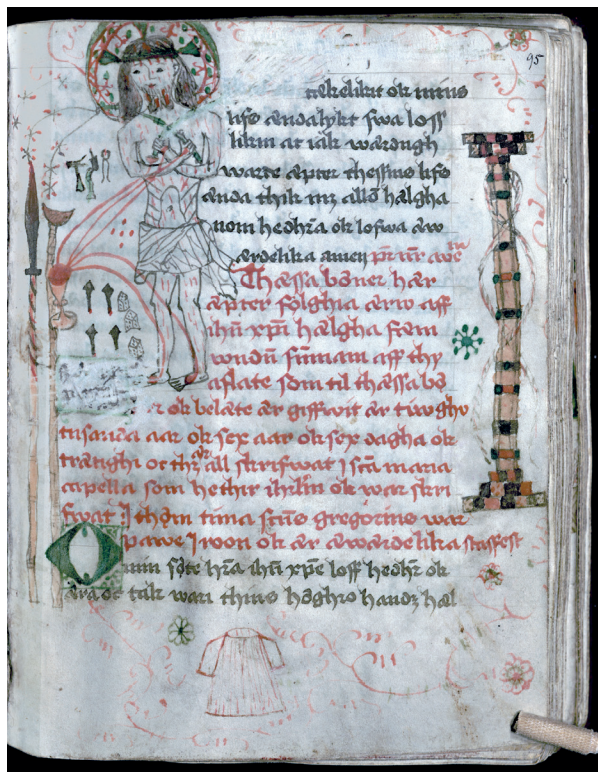 95
rekelikit ok mins
lifs ændalykt swa loff
likin at iak wardugh
warte æpter thessins lifs
ænda thik mz allō hælgha
nom hedhra ok lofwa æw
ærdelika amen pr nr aue
Thæssa bøner hær
æpter følghia ærw aff
ihū xpī hælgha fæm
wndū sūnnam aff thy
aflate som til thæssa bø
r ok belæte ær giffwit ær tiwghv
tusanda aar ok sex aar ok sex dagha ok
trætighi oc thz ær all skrifwat j scā maria
capella som hethir ihrlm ok war skri
fwat I thøm tima scūs gregorius war
pawe j room ok ær æwærdelika stadfest
O min søte hra ihū xpe loff hedhr ok
æra oc tak wari thins høghro handz hæl